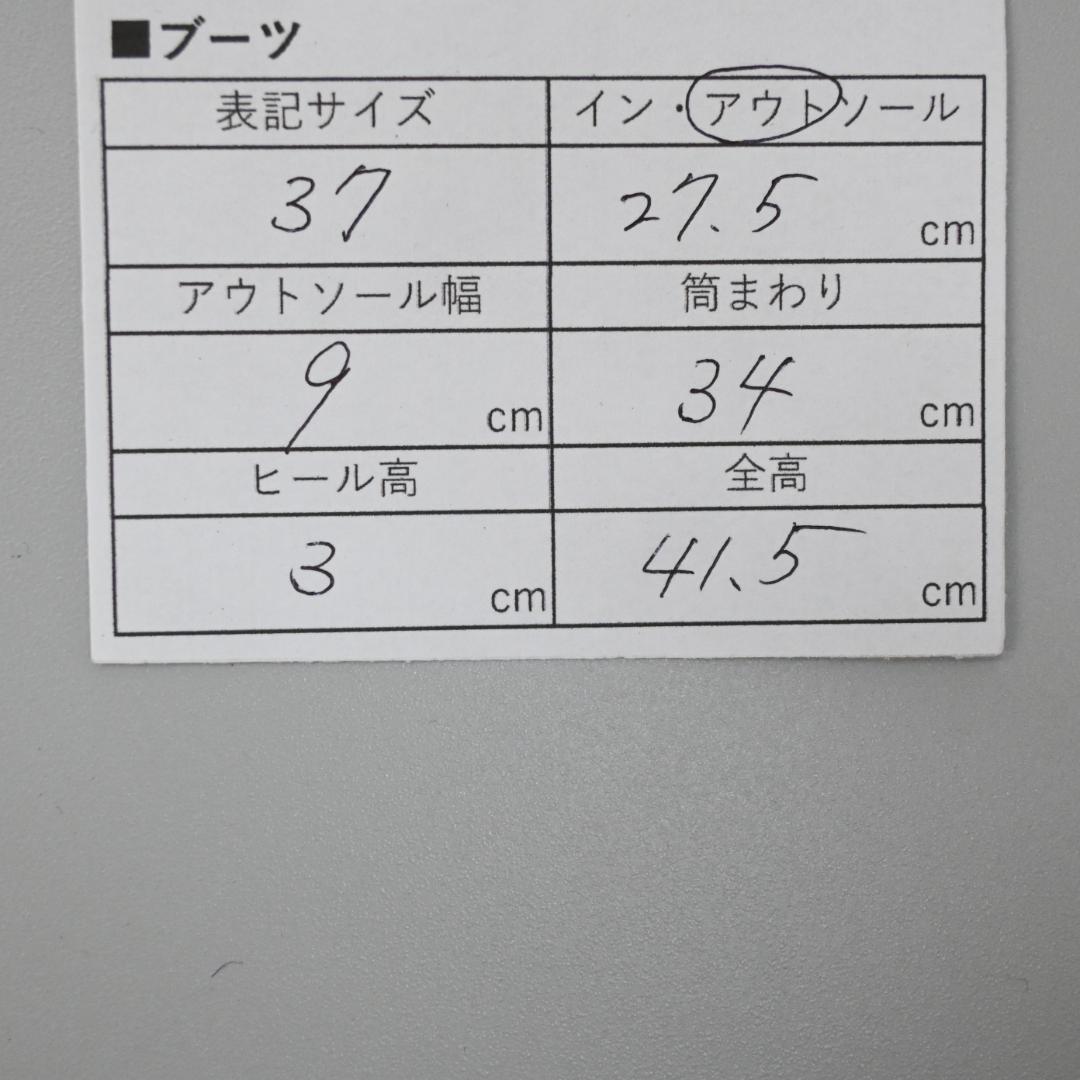 ■ブーツ
表記サイズ イン・アウトソール
37 27.5 cm
アウトソール幅 筒まわり
9 cm 34 cm
ヒール高 全高
3 cm 41.5 cm